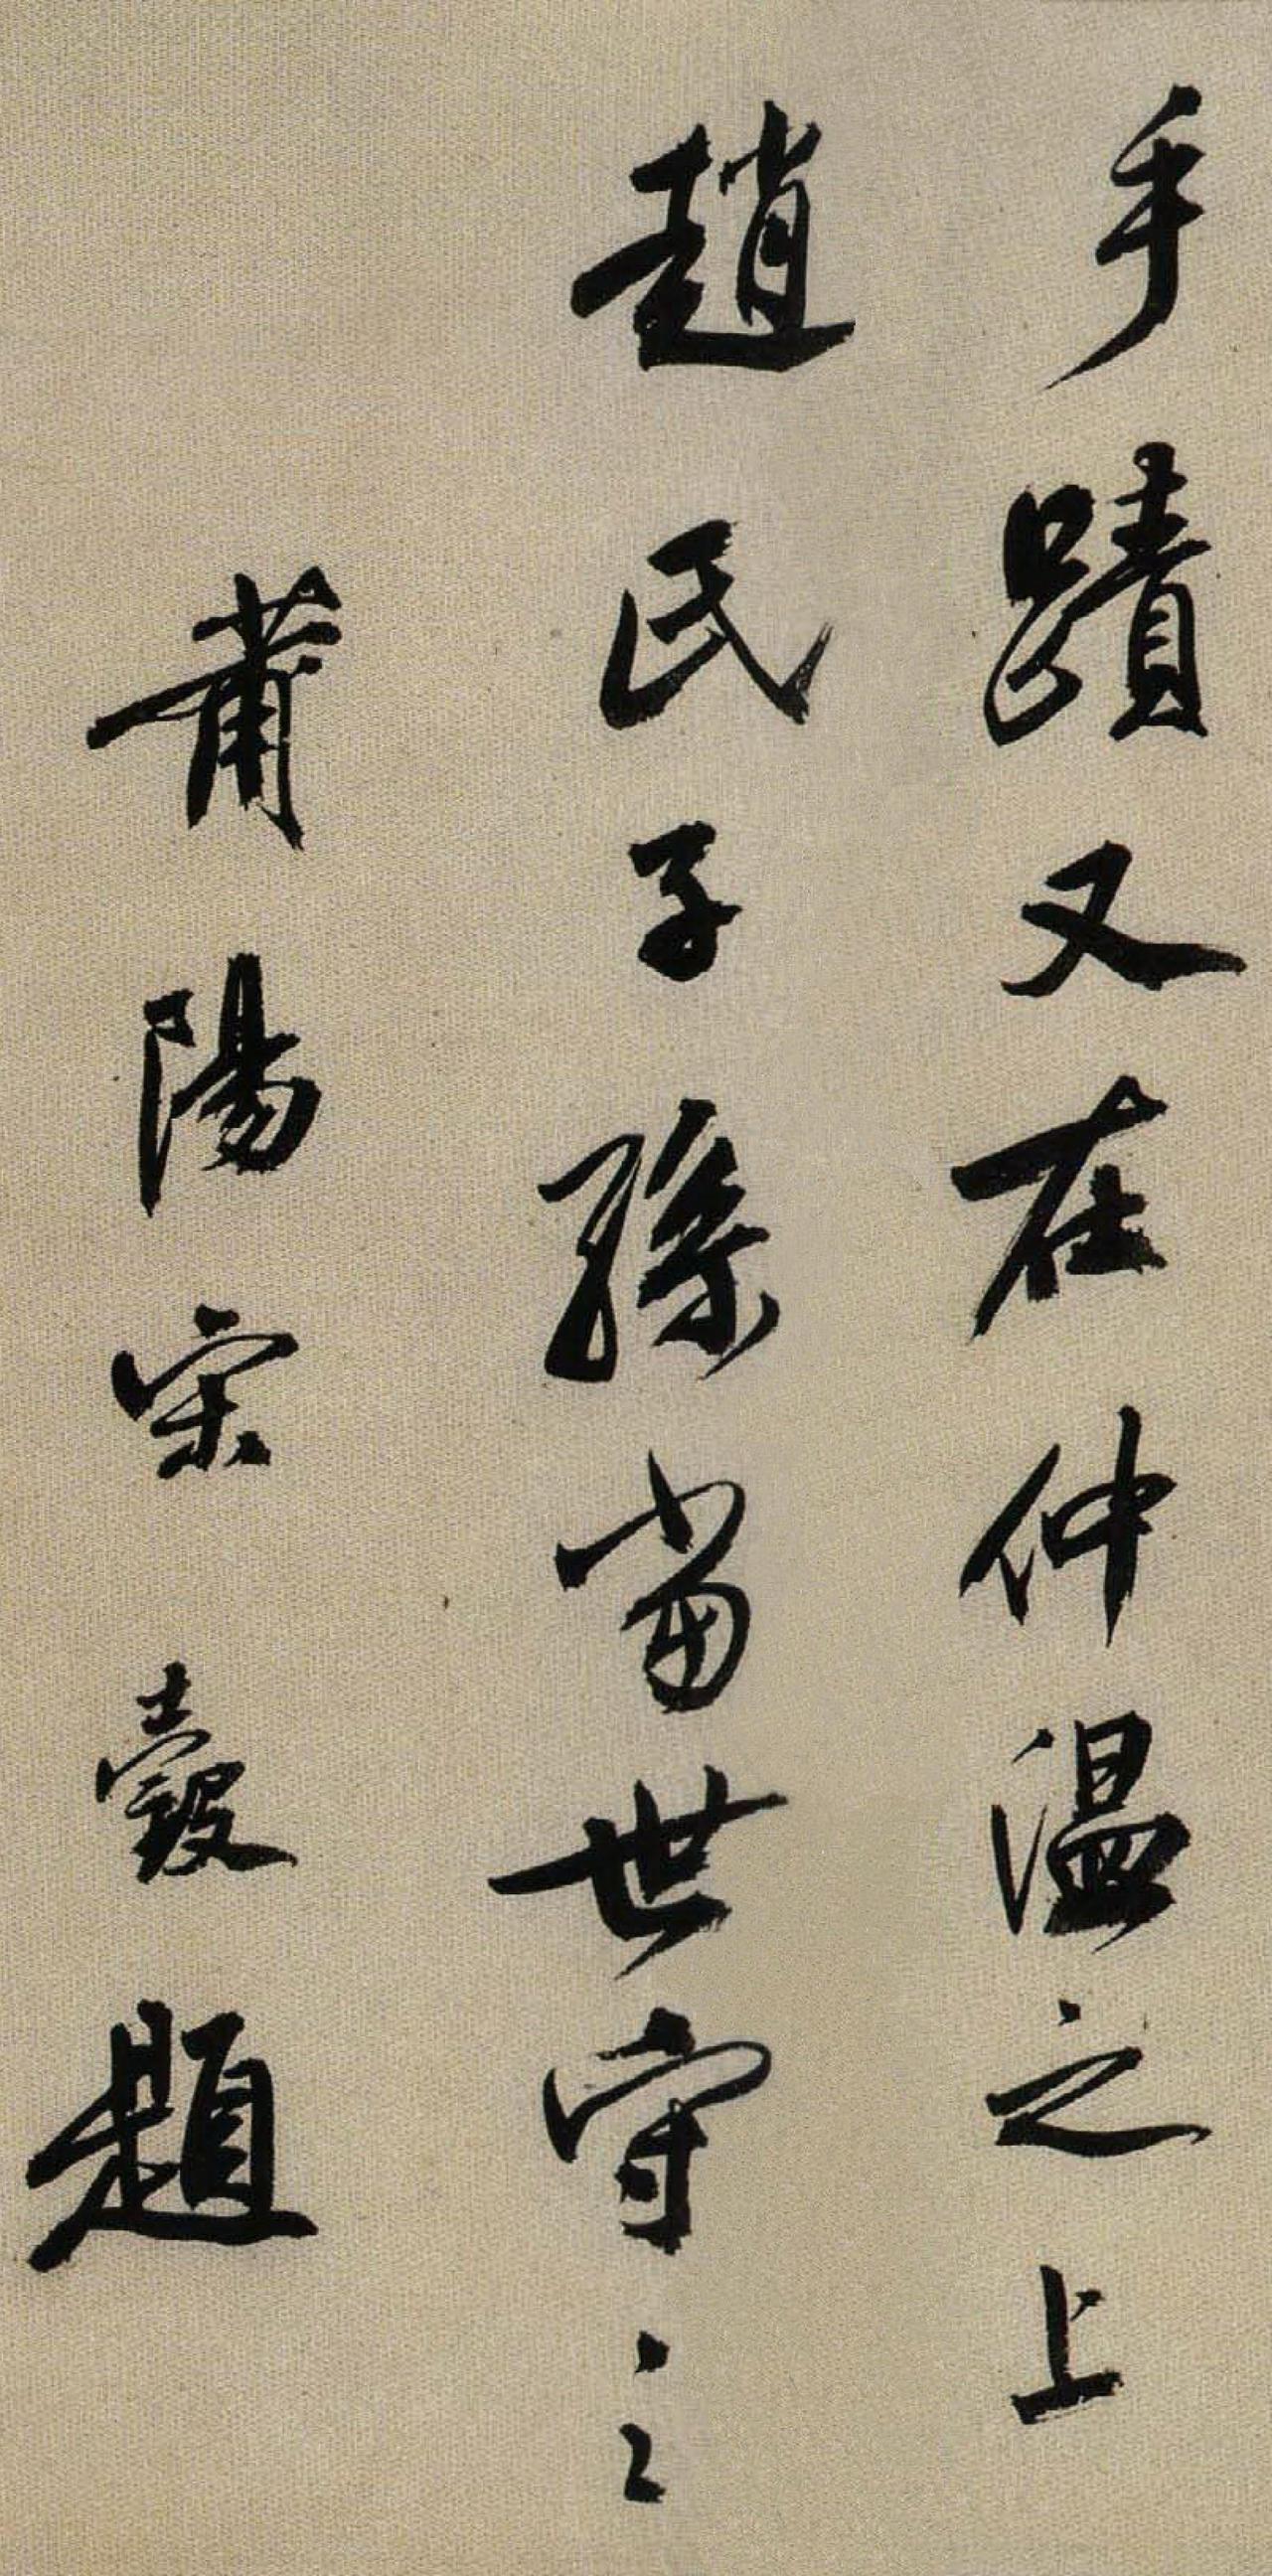 手蹟又在仲溫之上
趙氏子孫當世守之
莆陽宋瑴題